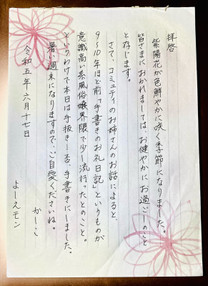 拝啓
紫陽花が色鮮やかに咲く季節になりました。
皆さまにおかれましては、お健やかにお過ごしのこと
と存じます。
さて、コミュニティのお姉さんのお話によると
9～10年ほど前「手書きのお礼日記」というものが
意識高い系風俗嬢界隈で少し流行ったとのこと。
そういうわけで本日は手抜き…否、手書きにしました。
暑い週末になりますので、ご自愛くださいね。
かしこ
令和五年六月十七日
よーえモン